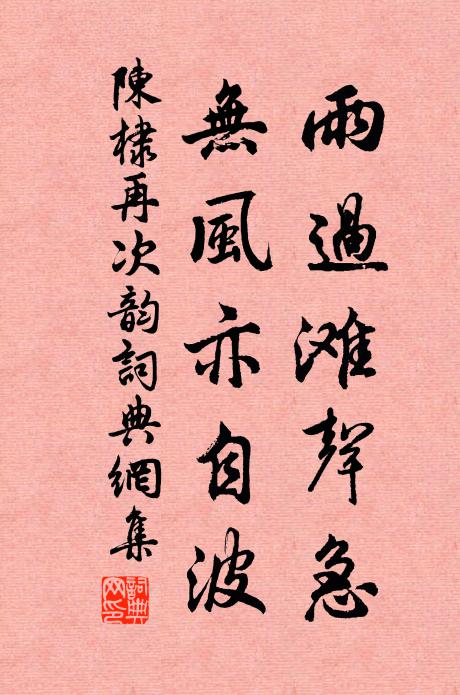 雨過滩聲急
無風亦自波
陳棣再次韵詞典網集
詞典
网印